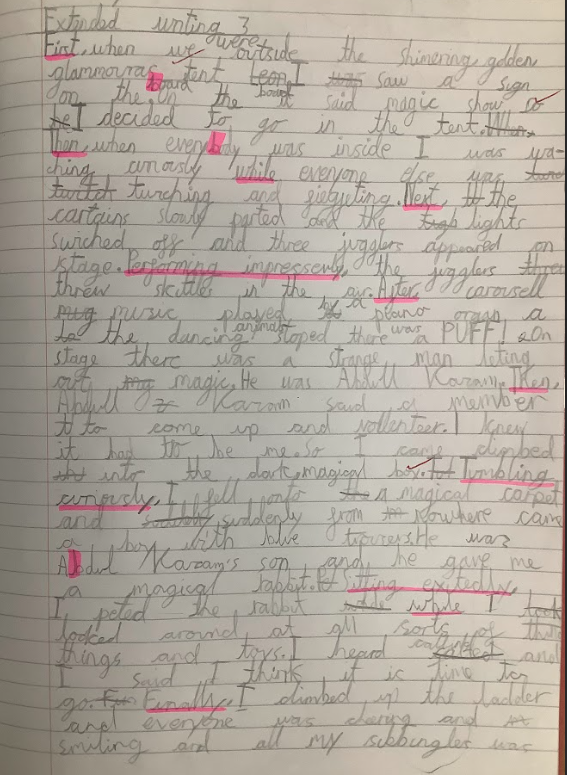 Extended writing 3
First, when we were outside the shimering, golden
glammouras tent I saw a sign
on the board on the board it said magic show so
I decided to go in the tent.
Then, when everybody was inside I was wa-
ching curiously while everyone else was
turching and giegjeting. Next, the
cartains slowly parted and the lights
swiched off and three jugglers appeared on
stage. Performing impressevly, the jugglers
threw skittles in the air. After, carousell
music played by a piano organ a
the dancing animals stoped there was a PUFF! On
stage there was a strange man leting
out magic. He was Abdull Karam. Then,
Abdull Karam said a member
to come up and vollenteer. I knew
it had to be me. So I came climbed
into the dark, magical box. Tumbling
curiously, I fell onto a magical carpet
and suddenly from Nowhere came
a boy with blue trousers. He was
Abdul Karam's son, and he gave me
a magical rabbit. Sitting exitedly,
I peted the rabbit while I
looked around at all sorts of
things and toys. I heard and
I said I think it is time to
go. Finally, I climbed up the ladder
and everyone was chering and
smiling and all my sibbingles was